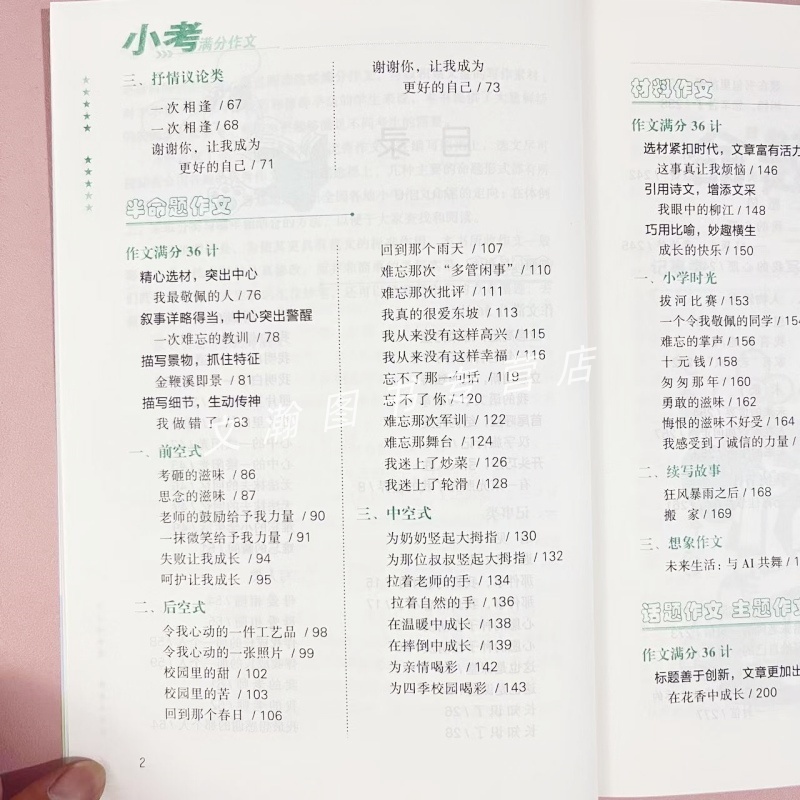 小考满分作文
三、抒情议论类
一次相逢 / 67
一次相逢 / 68
谢谢你，让我成为
更好的自己 / 71
谢谢你，让我成为
更好的自己 / 73
半命题作文
作文满分 36 计
精心选材，突出中心
我最敬佩的人 / 76
叙事详略得当，中心突出警醒
一次难忘的教训 / 78
描写景物，抓住特征
金鞭溪即景 / 81
描写细节，生动传神
我做错了 / 83
一、前空式
考砸的滋味 / 86
思念的滋味 / 87
老师的鼓励给予我力量 / 90
一抹微笑给予我力量 / 91
失败让我成长 / 94
呵护让我成长 / 95
二、后空式
令我心动的一件工艺品 / 98
令我心动的一张照片 / 99
校园里的甜 / 102
校园里的苦 / 103
回到那个春日 / 106
回到那个雨天 / 107
难忘那次“多管闲事” / 110
难忘那次批评 / 111
我真的很爱东坡 / 113
我从来没有这样高兴 / 115
我从来没有这样幸福 / 116
忘不了那一句话 / 119
忘不了你 / 120
难忘那次军训 / 122
难忘那舞台 / 124
我迷上了炒菜 / 126
我迷上了轮滑 / 128
三、中空式
为奶奶竖起大拇指 / 130
为那位叔叔竖起大拇指 / 132
拉着老师的手 / 134
拉着自然的手 / 136
在温暖中成长 / 138
在摔倒中成长 / 139
为亲情喝彩 / 142
为四季校园喝彩 / 143
2
材料作文
作文满分 36 计
选材紧扣时代，文章富有活力
这事真让我烦恼 / 146
引用诗文，增添文采
我眼中的柳江 / 148
巧用比喻，妙趣横生
成长的快乐 / 150
一、小学时光
拔河比赛 / 153
一个令我敬佩的同学 / 154
难忘的掌声 / 156
十元钱 / 158
匆匆那年 / 160
勇敢的滋味 / 162
悔恨的滋味不好受 / 164
我感受到了诚信的力量 /
二、续写故事
狂风暴雨之后 / 168
搬 家 / 169
三、想象作文
未来生活：与 AI 共舞 /
话题作文 主题作文
作文满分 36 计
标题善于创新，文章更加出
在花香中成长 / 200